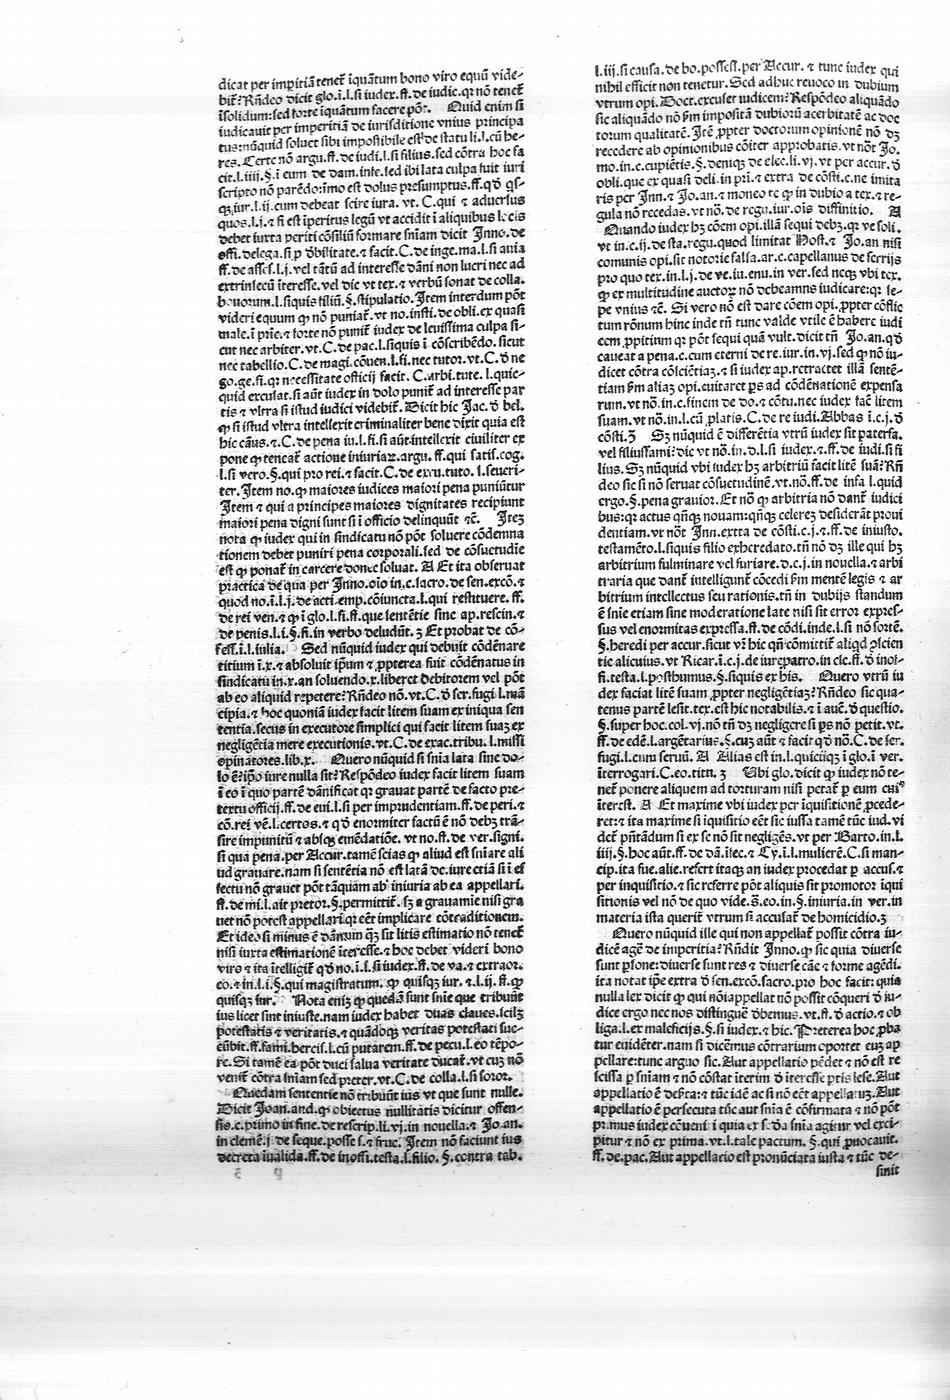 dicat per impitiã tenet̃ ĩquãtum bono viro equũ vide-
bit̃? Rñdeo dicit glo.ĩ.l.si iudex.ff.de iudic.qr nõ tenet̃
ĩsolidum: sed forte ĩquãtum facere põt. Quid enim si
iudicauit per imperitiã de iurisditione vnius principa
tus: nũquid soluet sibi impossibile est? de statu li.l.cũ he-
res. Certe nõ argu.ff.de iudi.l.si filius.sed cõtra hoc fa
cit.l.iiij.§.i cum de dam.infe.sed ibi lata culpa fuit iuri
scripto nõ parẽdo: imo est dolus presumptus.ff.q̃ õ qs-
q̃.iur.l.ij.cum debeat scire iura. vt. C.qui ꝛ aduersus
quos.l.i.ꝛ si est ĩperitus legũ vt accidit ĩ aliquibus locis
debet iuxta periti cõsiliũ formare sniam dicit Inno.de
offi.delega.si p õbilitate.ꝛ facit.C.de inge.ma.l.si auia
ff.de asses.l.j.vel tãtũ ad interesse dãni non lucri nec ad
extrinsecũ ĩteresse.vel dic vt tex.ꝛ verbũ sonat de colla.
bonorum.l.siquis filiũ.§.stipulatio. Item interdum põt
videri equum ꝙ nõ puniat̃.vt no.insti.de obli.ex quasi
male.ĩ prĩe.ꝛ forte nõ punit̃ iudex de leuissima culpa si-
cut nec arbiter.vt.C.de pac.l.siquis ĩ cõscribẽdo.sicut
nec tabellio.C.de magi.cõuen.l.fi.nec tutor.vt.C.õ ne
go.ge.fi.qr necessitate officij facit. C.arbi.tute. l.quic-
quid excusat.si aũt iudex in dolo punit̃ ad interesse par
tis ꝛ vltra si istud iudici videbit̃. Dicit hic Jac.õ bel.
ꝙ si istud vltra intellexit criminaliter bene dixit quia est
hic cãus.ꝛ.C.de pena iu.l.fi.si aũt intellexit ciuiliter ex
pone ꝙ tencat̃ actione iniuriaꝝ.argu.ff.qui satif.cog.
l.si vero.§.qui pro rei.ꝛ facit.C.de excu.tuto. l.seueri-
ter. Item no.ꝙ maiores iudices maiori pena puniũtur
Item ꝛ qui a principes maiores dignitates recipiunt
maiori pena digni sunt si ĩ officio delinquũt ꝛc̃. Iteꝫ
nota ꝙ iudex qui in sindicatu nõ põt soluere cõdemna
tionem debet puniri pena corporali.sed de cõsuetudie
est ꝙ ponat̃ in carcere donec soluat. A Et ita obseruat
practica de qua per Inno.oĩo in.c.sacro.de sen.excõ.ꝛ
quod no.ĩ.l.j.de acti.emp.cõiuncta.l.qui restituere.ff.
de rei ven.ꝛ ꝙ ĩ glo.l.fi.ff.que sentẽtie sine ap.rescin.ꝛ
de penis.l.i.§.fi.in verbo deludũt.ꝫ Et probat de cõ-
fess.ĩ.l.iulia. Sed nũquid iudex qui debuit cõdẽnare
titium ĩ.x.ꝛ absoluit ip̃um ꝛ ꝓpterea fuit cõdẽnatus in
sindicatu in.x.an soluendo.x.liberet debitorem vel põt
ab eo aliquid repetere? Rñdeo nõ.vt.C.õ ser.fugi l.mã
cipia.ꝛ hoc quoniã iudex facit litem suam ex iniqua sen
tentia.secus in executore simplici qui facit litem suaꝫ ex
negligẽtia mere executionis.vt.C.de exac.tribu.l.missi
opinatores.lib.x. Quero nũquid si snia lata sine do-
lo ẽ? ip̃o iure nulla sit? Respõdeo iudex facit litem suam
ĩ eo ĩ quo partẽ dãnificat qr grauat partẽ de facto pre-
textu officij.ff.de eui.l.si per imprudentiam.ff.de peri.ꝛ
cõ.rei vẽ.l.certos.ꝛ q̃ õ enormiter factũ ẽ nõ debꝫ trã-
sire impunitũ ꝛ absqꝫ emẽdatiõe. vt no.ff.de ver.signi.
si qua pena.per Accur.tamẽ scias ꝙ aliud est sniare ali
ud grauare.nam si sentẽtia nõ est lata de.iure etiã si ĩ ef
fectu nõ grauet põt tãquam ab iniuria ab ea appellari.
ff.de mi.l.ait pretor.§.permittit̃. sꝫ a grauamie nisi gra
uet nõ potest appellari qr eẽt implicare cõtraditionem.
Et ideo si minus ẽ dãnum q̃ꝫ sit litis estimatio nõ tenet̃
nisi iuxta estimationẽ ĩteresse.ꝛ hoc debet videri bono
viro ꝛ ita ĩtelligit̃ q̃ õ no.ĩ.l.si iudex.ff.de va.ꝛ extraor.
co.ꝛ in.l.i.§.qui magistratum. ꝙ quisqꝫ iur. ꝛ.l.ij. ff.ꝙ
quisqꝫ iur. Nota eniꝫ ꝙ quedã sunt snie que tribuũt
ius licet sint iniuste.nam iudex habet duas claues.sciliꝫ
potestatis ꝛ veritatis.ꝛ quãdoqꝫ veritas potestati suc-
cũbit.ff.fami.hercis.l.cũ putarem.ff.de pecu.l.eo tẽpo-
re. Si tamẽ ea põt duci salua veritate ducat̃.vt cuꝫ nõ
venit̃ cõtra sniam sed preter.vt.C.de colla.l.si soror.
Quedam sententie nõ tribuũt ius vt que sunt nulle.
Dicit Joan.and.ꝙ obiectus nullitatis dicitur offen-
sis.c.primo in fine.de rescrip.li.vj.in nouella.ꝛ Jo.an.
in clemẽ.j.de seque.posse s.ꝛ fruc. Item nõ faciunt ius
decreta ĩualida.ff.de inoffi.testa.l.filio. §.contra tab.
l.iij.si causa.de bo.possess.per Accur. ꝛ tunc iudex qui
nihil efficit non tenetur. Sed adhuc reuoco in dubium
vtrum opi. Doct.excuset iudicem? Respõdeo aliquãdo
sic aliquãdo nõ s̃m impositã dubiorũ acerbitatẽ ac doc
torum qualitatẽ. Itẽ ꝓpter doctorum opinionẽ nõ dꝫ
recedere ab opinionibus cõiter approbatis.vt nõt Jo.
mo.in.c.cupiẽtis.§.deniqꝫ de elec.li.vj.vt per accur.õ
obli.que ex quasi deli.in pri.ꝛ extra de cõsti.c.ne imita
ris per Inn.ꝛ Jo.an.ꝛ moneo te ꝙ in dubio a tex.ꝛ re-
gula nõ recedas.vt nõ.de regu.iur.oĩs diffinitio. A
Quando iudex hꝫ cõem opi.illã sequi debꝫ.qr ve soli.
vt in.c.ij.de sta.regu.quod limitat Host.ꝛ Jo.an nisi
comunis opi.sit notorie falsa.ar.c.capellanus de serrijs
pro quo tex.in.l.j.de ve.iu.enu.in ver.sed necqꝫ vbi tex.
ꝙ ex multitudine auctoꝝ nõ debeamus iudicare: qr se-
pe vnius ꝛc̃. Si vero nõ est dare cõem opi.ꝓpter cõflic
tum rõnum hinc inde tñ tunc valde vtile ẽ habere iudi
cem ꝓpitium qr põt sequi quã vult.dicit tñ Jo.an.q̃ õ
caueat a pena.c.cum eterni de re.iur.in.vj.sed ꝙ nõ iu-
dicet cõtra cõsciẽtiaꝫ.ꝛ si iudex ap.retractet illã sentẽ-
tiam s̃m aliaꝫ opi.euitaret ps̃ ad cõdẽnationẽ expensa
rum.vt nõ.in.c.finem de do.ꝛ cõtu.nec iudex facẽ litem
suam.vt nõ.in.l.cũ ꝓlatis.C.de re iudi. Abbas ĩ.c.j.õ
cõsti.ꝫ Sꝫ nũquid ẽ differẽtia vtrũ iudex sit paterfa.
vel filiusfami? dic vt nõ.in.d.l.si iudex.ꝛ.ff.de iudi.si fi
lius. Sꝫ nũquid vbi iudex hꝫ arbitriũ facit litẽ suã? Rñ
deo sic si nõ seruat cõsuetudinẽ.vt.nõ.ff.de infa l.quid
ergo.§.pena grauior. Et nõ ꝙ arbitria nõ dant̃ iudici
bus: qr actus qñqꝫ nouam: qñqꝫ celereꝫ desiderãt proui
dentiam.vt nõt Inn.extra de cõsti.c.j.ꝛ.ff.de iniusto.
testamẽto.l.siquis filio exheredato.tñ nõ dꝫ ille qui hꝫ
arbitrium fulminare vel furiare.d.c.j.in nouella.ꝛ arbi
traria que dant̃ intelligunt̃ cõcedi s̃m mentẽ legis ꝛ ar
bitrium intellectus seu rationis.tñ in dubijs standum
ẽ snĩe etiam sine moderatione late nisi sit error expres-
sus vel enormitas expressa.ff.de cõdi.inde.l.si nõ sortẽ.
§.heredi per accur.sicut vñ hic qñ cõmittit̃ aliqd ꝯscien
tie alicuius.vt Ricar.ĩ.c.j.de iurepatro.in cle.ff.õ inof-
fi.testa.l.posthumus.§.siquis ex his. Quero vtrũ iu
dex faciat litẽ suam ꝓpter negligẽtiaꝫ? Rñdeo sic qua-
tenus partẽ lesit.tex.est hic notabilis.ꝛ ĩ auẽ.õ questio.
§.super hoc.col.vj.nõ tñ dꝫ negligere si ps̃ nõ petit.vt.
ff.de edẽ.l.argẽtarius.§.cuꝫ aũt ꝛ facit q̃ õ nõ.C.de ser.
fugi.l.cum seruũ. A Alias est in.l.quicũqꝫ ĩ glo.ĩ ver.
ĩterrogari.C.eo.titn. ꝫ Vbi glo.dicit ꝙ iudex nõ te-
net̃ ponere aliquem ad torturam nisi petat̃ ꝑ eum cui⁹
ĩterest. A Et maxime vbi iudex per ĩquisitionẽ ꝓcede-
ret: ꝛ ita maxime si ĩquisitio eẽt sic iussa tamẽ tũc iud.vi
dct̃ pñtãdum si ex se nõ sit negligẽs.vt per Barto.in.l.
iiij.§.hoc aũt.ff.de dã.ifec.ꝛ Cy.ĩ.l.mulierẽ.C.si man-
cip.ita fue.alie.refert itaqꝫ an iudex procedat ꝑ accus.ꝛ
per inquisitio.ꝛ sic referre põt aliquis sit promotor ĩqui
sitionis vel nõ de quo vide.s̃.eo.in.§.iniuria.in ver.in
materia ista querit̃ vtrum si accusat̃ de homicidio.ꝫ
Quero nũquid ille qui non appellat̃ possit cõtra iu-
dicẽ agẽ de imperitia? Rñdit Inno.ꝙ sic quia diuerse
sunt ꝑsone: diuerse sunt res ꝛ diuerse cãe ꝛ forme agẽdi.
ita notat ip̃e extra õ sen.excõ.sacro.pro hoc facit: quia
nulla lex dicit ꝙ qui nõ iappellat nõ possit cõqueri õ iu-
dice ergo nec nos distinguẽ õbemus.vt.ff.õ actio.ꝛ ob
liga.l.ex maleficijs.§.si iudex.ꝛ hic. Preterea hoc ꝓba
tur euidẽter.nam si dicẽmus cõtrarium oportet eum ap
pellare: tunc arguo sic. Aut appellatio pẽdet ꝛ nõ est re
scissa ꝑ sniam ꝛ nõ cõstat iterim õ ĩteresse ptis lese. Aut
appellatio ẽ deb̃ta: ꝛ tũc idẽ ac si nõ eẽt appellatuꝫ. Aut
appellatio ẽ persecuta tũc aut snia ẽ cõfirmata ꝛ nõ põt
primus iudex cõueni ĩ quia ex sc̃ õa snia agitur vel exci-
pitur ꝛ nõ ex prima.vt.l.tale pactum. §.qui ꝓuocauit.
ff.de.pac. Aut appellacio est pronũciata iusta ꝛ tũc de-
sinit